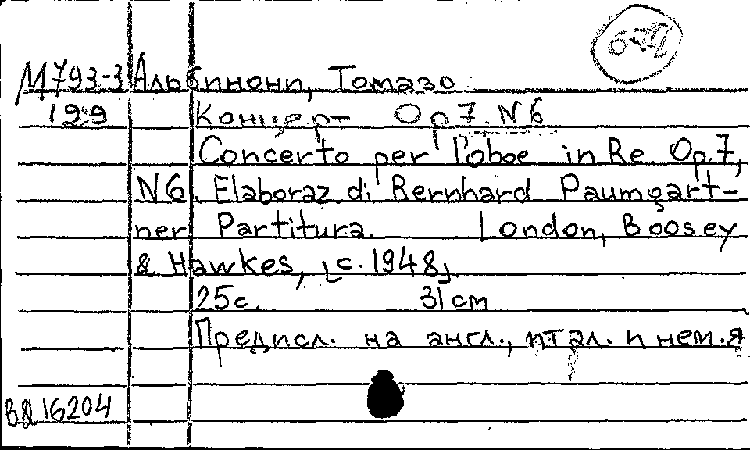 М793-3 Альбинони, Томазо
199 Концерт Op 7. N6
Concerto per l'oboe in Re Op.7,
N6. Elaboraz. di Bernhard Paumgart-
ner Partitura. London, Boosey
& Hawkes, [c. 1948]
25с. 31cm
Предисл. на англ., итал. и нем. я
ВД 16204